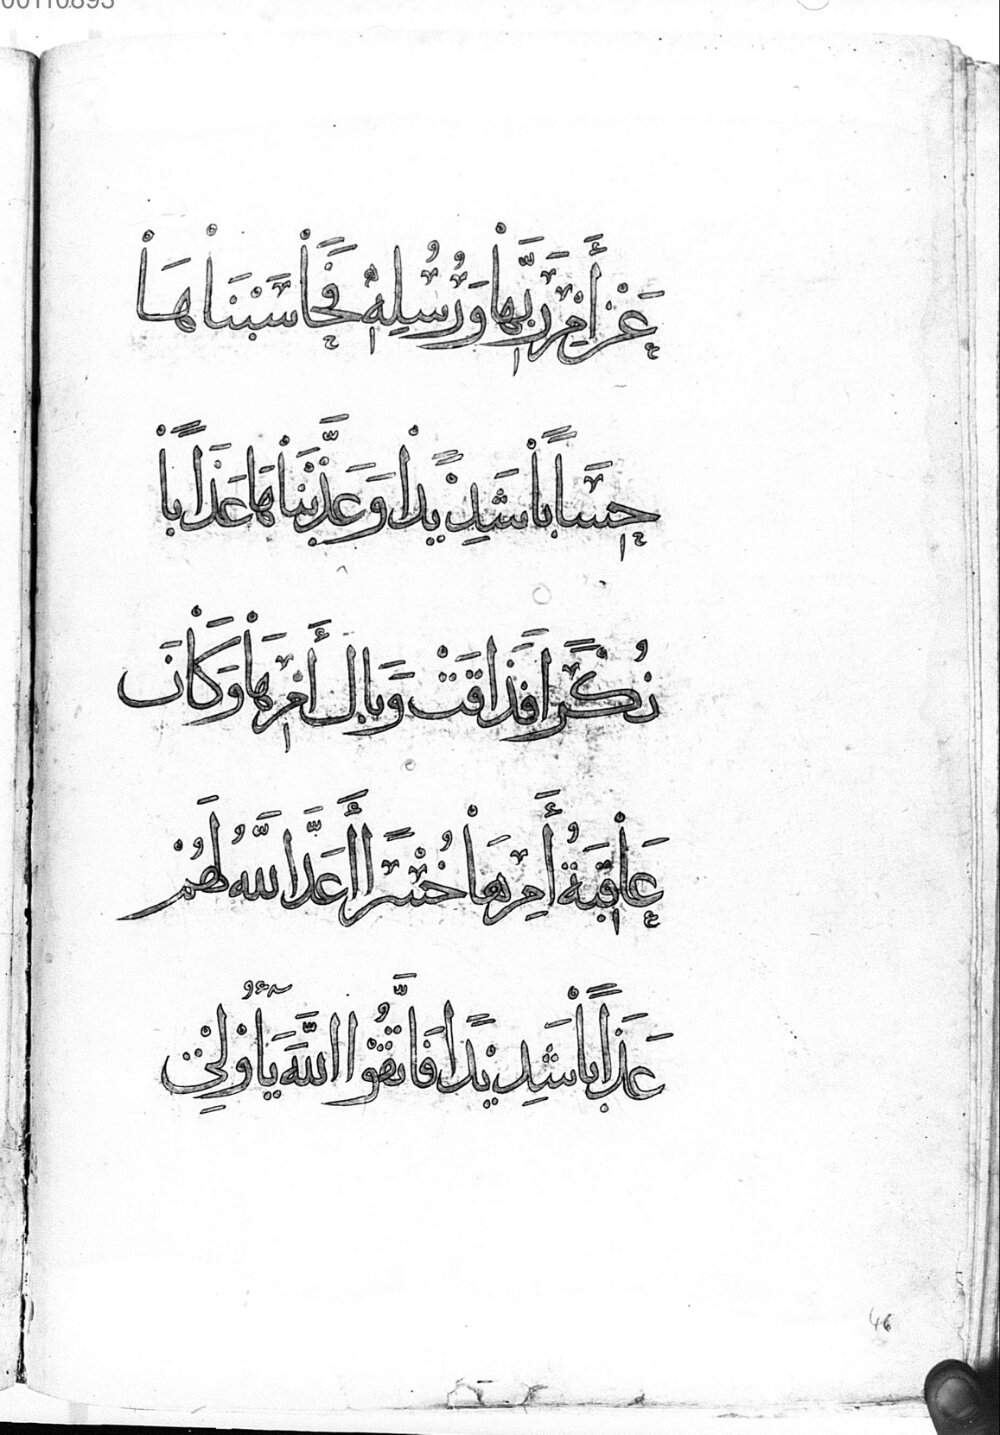 00110893
عَنْ أَمْرِ رَبِّهَا وَرُسُلِهِ فَحَاسَبْنَاهَا
حِسَابًا شَدِيدًا وَعَذَّبْنَاهَا عَذَابًا
نُكْرًا فَذَاقَتْ وَبَالَ أَمْرِهَا وَكَانَ
عَاقِبَةُ أَمْرِهَا خُسْرًا أَعَدَّ اللَّهُ لَهُمْ
عَذَابًا شَدِيدًا فَاتَّقُوا اللَّهَ يَآ أُوْلِي
46